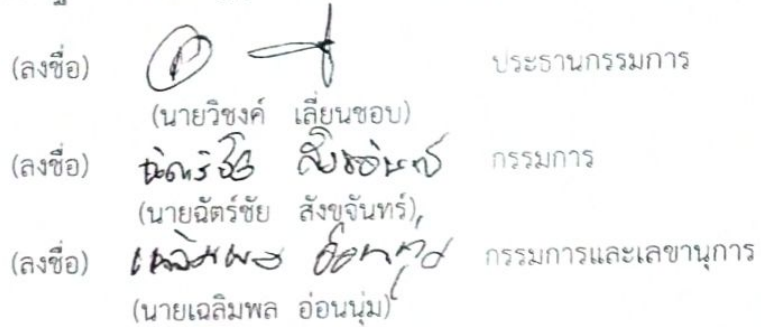 (ลงชื่อ) ประธานกรรมการ
(นายวิชงค์ เลี่ยนชอบ)
(ลงชื่อ) ฉัตรชัย สังขจันทร์ กรรมการ
(นายฉัตร์ชัย สังขจันทร์)
(ลงชื่อ) เฉลิมพล อ่อนนุ่ม กรรมการและเลขานุการ
(นายเฉลิมพล อ่อนนุ่ม)